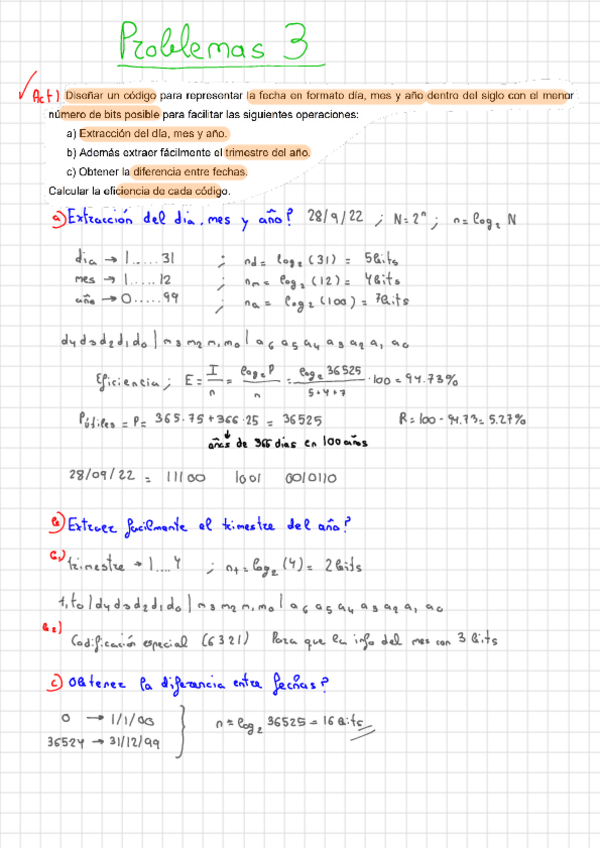 Problemas 3
Act1 Diseñar un código para representar la fecha en formato día, mes y año dentro del siglo con el menor
número de bits posible para facilitar las siguientes operaciones:
a) Extracción del día, mes y año.
b) Además extraer fácilmente el trimestre del año.
c) Obtener la diferencia entre fechas.
Calcular la eficiencia de cada código.
a) Extracción del dia, mes y año? 28/9/22 ; N=2^n ; n=log₂ N
dia → 1.....31 ; nd= log₂ (31) = 5bits
mes → 1.....12 ; nm= log₂ (12) = 4bits
año → 0.....99 ; na= log₂ (100) = 7bits
d4 d3 d2 d1 d0 | m3 m2 m1 m0 | a6 a5 a4 a3 a2 a1 a0
Eficiencia; E = I/n = log₂P/n = log₂ 36525/5+4+7 · 100 = 94.73%
Pútiles = P = 365·75 + 366·25 = 36525 R=100-94.73=5.27%
años de 366 dias en 100 años
28/09/22 = 11100 1001 0010110
b) Extraer facilmente el trimestre del año?
trimestre → 1....4 ; nt=log₂(4)= 2bits
t1 t0 | d4 d3 d2 d1 d0 | m3 m2 m1 m0 | a6 a5 a4 a3 a2 a1 a0
Codificación especial (6321) Para que la info del mes con 3 bits
c) Obtener la diferencia entre fechas?
0 → 1/1/00
n=log₂ 36525=16bits
36524 → 31/12/99